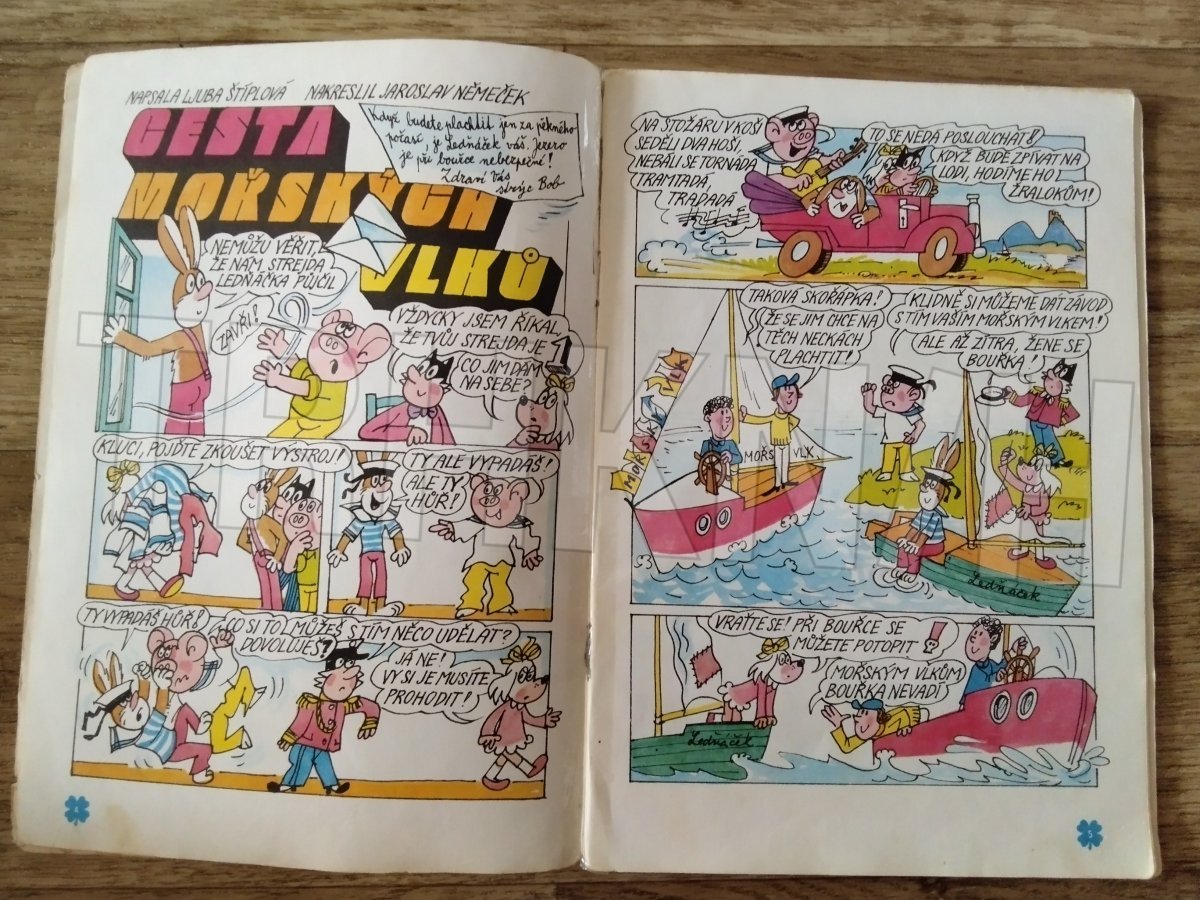 NAPSALA LJUBA ŠTÍPLOVÁ NAKRESLIL JAROSLAV NĚMEČEK
CESTA
MOŘSKÝCH
VLKŮ
Když budete plachtit jen za pěkného
počasí, je Ledňáček váš. Jezero
je při bouřce nebezpečné!
Zdraví Vás
strýc Bob
NEMŮŽU VĚŘIT,
ŽE NÁM STREJDA
LEDŇÁČKA PŮJČIL
ZAVŘI!
VŽDYCKY JSEM ŘÍKAL,
ŽE TVŮJ STREJDA JE 1
CO JIM DÁM
NA SEBE?
KLUCI, POJĎTE ZKOUŠET VÝSTROJ!
TY ALE VYPADÁŠ!
ALE TY
HŮŘ!
TY VYPADÁŠ HŮŘ!
CO SI TO
DOVOLUJEŠ?
MŮŽEŠ S TÍM NĚCO UDĚLAT?
JÁ NE!
VY SI JE MUSÍTE
PROHODIT!
4
NA STOŽÁRU V KOŠI
SEDĚLI DVA HOŠI,
NEBÁLI SE TORNÁDA
TRAMTADÁ,
TRADADÁ
TO SE NEDÁ POSLOUCHAT!
KDYŽ BUDE ZPÍVAT NA
LODI, HODÍME HO
ŽRALOKŮM!
TAKOVÁ SKOŘÁPKA!
ŽE SE JIM CHCE NA
TĚCH NECKÁCH
PLACHTIT!
KLIDNĚ SI MŮŽEME DÁT ZÁVOD
S TÍM VAŠÍM MOŘSKÝM VLKEM!
ALE AŽ ZÍTRA, ŽENE SE
BOUŘKA!
MOŘSKÝ VLK
MOŘS VLK
Ledňáček
VRAŤTE SE! PŘI BOUŘCE SE
MŮŽETE POTOPIT!
MOŘSKÝM VLKŮM
BOUŘKA NEVADÍ
Ledňáček
5